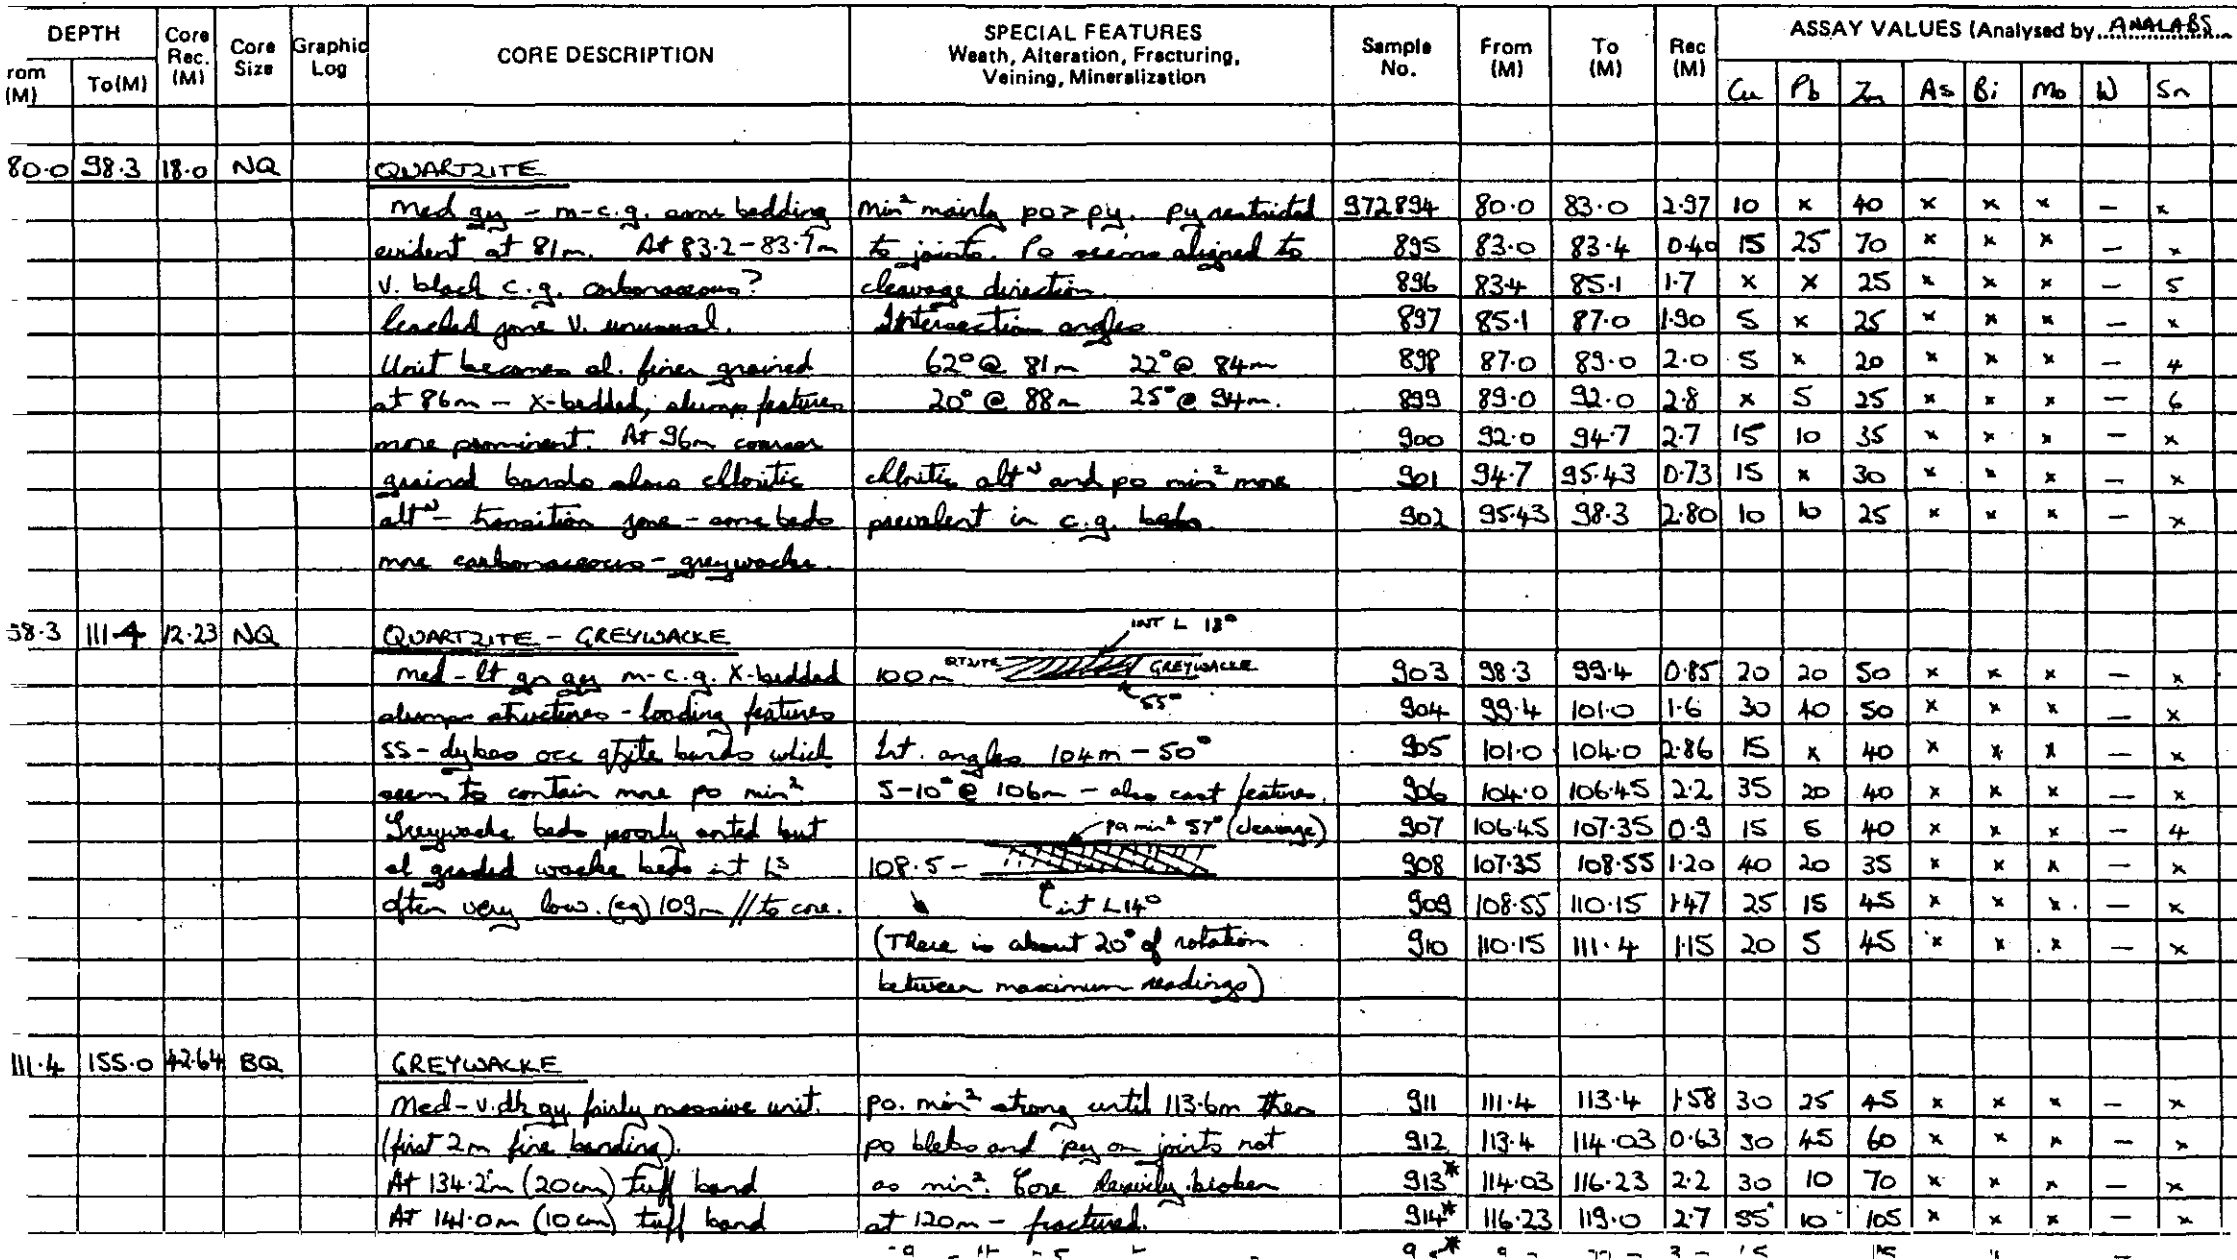 DEPTH Core Rec. (M) Core Size Graphic Log CORE DESCRIPTION SPECIAL FEATURES Weath, Alteration, Fracturing, Veining, Mineralization Sample No. From (M) To (M) Rec (M) ASSAY VALUES (Analysed by ANALABS
rom (M) To(M) Cu Pb Zn As Bi Mo W Sn
80.0 98.3 18.0 NQ QUARTZITE
Med gy - m-c.g. some bedding min² mainly po > py. py restricted 972894 80.0 83.0 2.97 10 x 40 x x x - x
evident at 81m. At 83.2-83.7m to joints. Po seems aligned to 895 83.0 83.4 0.40 15 25 70 x x x - x
v. black c.g. carbonaceous? cleavage direction. 896 83.4 85.1 1.7 x x 25 x x x - 5
leached zone v. unusual. Intersection angles 897 85.1 87.0 1.90 5 x 25 x x x - x
Unit becomes sl. finer grained 62° @ 81m 22° @ 84m 898 87.0 89.0 2.0 5 x 20 x x x - 4
at 86m - x-bedded, slump features 20° @ 88m 25° @ 94m. 899 89.0 92.0 2.8 x 5 25 x x x - 6
more prominent. At 96m coarser 900 92.0 94.7 2.7 15 10 35 x x x - x
grained bands show chloritic chloritic altᴺ and po min² more 901 94.7 95.43 0.73 15 x 30 x x x - x
altᴺ - transition zone - some beds prevalent in c.g. beds. 902 95.43 98.3 2.80 10 10 25 x x x - x
more carbonaceous - greywacke.
98.3 111.4 12.23 NQ QUARTZITE - GREYWACKE INT L 18°
med - lt gn gy m-c.g. X-bedded 100m QTZITE GREYWACKE 903 98.3 99.4 0.85 20 20 50 x x x - x
slumps structures - loading features 55° 904 99.4 101.0 1.6 30 40 50 x x x - x
ss - dykes occ qtzite bands which Int. angles 104m - 50° 905 101.0 104.0 2.86 15 x 40 x x x - x
seem to contain more po min² 5-10° @ 106m - also cast features. 906 104.0 106.45 2.2 35 20 40 x x x - x
Greywacke beds poorly sorted but po min² 57° (cleavage) 907 106.45 107.35 0.9 15 5 40 x x x - 4
sl graded wacke beds int Ls 108.5 - 908 107.35 108.55 1.20 40 20 35 x x x - x
often very low. (eg) 109m // to core. int L 14° 909 108.55 110.15 1.47 25 15 45 x x x - x
(There is about 20° of rotation 910 110.15 111.4 1.15 20 5 45 x x x - x
between maximum readings)
111.4 155.0 42.64 BQ GREYWACKE
Med - v. dk gy. fairly massive unit. po. min² strong until 113.6m then 911 111.4 113.4 1.58 30 25 45 x x x - x
(first 2m fine banding). po blebs and py on joints not 912 113.4 114.03 0.63 30 45 60 x x x - x
At 134.2m (20cm) tuff band as min². Core heavily broken 913* 114.03 116.23 2.2 30 10 70 x x x - x
At 141.0m (10cm) tuff band at 120m - fractured. 914* 116.23 119.0 2.7 55 10 105 x x x - x